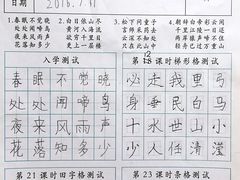 日期 2016.7.11
1、春眠不觉晓 2、白日依山尽 3、松下问童子 4、朝辞白帝彩云间
处处闻啼鸟 黄河入海流 言师采药去 千里江陵一日还
夜来风雨声 欲穷千里目 只在此山中 两岸猿声啼不住
花落知多少 更上一层楼 云深不知处
入学测试 第18课时梯形格测试
12
春眠不觉晓 必走我里弓
处处闻啼鸟 身垂民白马
夜来风雨声 十水世山小
花落知多少 士人任清滢
第21课时田字格测试 第23课时条格测试